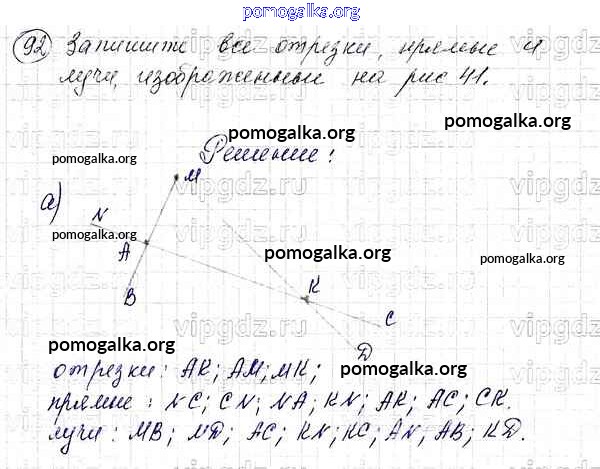 pomogalka.org
92 Запишите все отрезки, прямые и
лучи, изображенные на рис 41.
vipgdz.ru
pomogalka.org
pomogalka.org
pomogalka.org
Решение:
M
а)
N
pomogalka.org
A
pomogalka.org
pomogalka.org
K
B
C
pomogalka.org
D
pomogalka.org
отрезки: AK; AM; MK;
pomogalka.org
прямые: NC; CN; NA; KN; AK; AC; CK.
лучи: MB; MD; AC; KN; KC; AN; AB; KD.
pomogalka.org